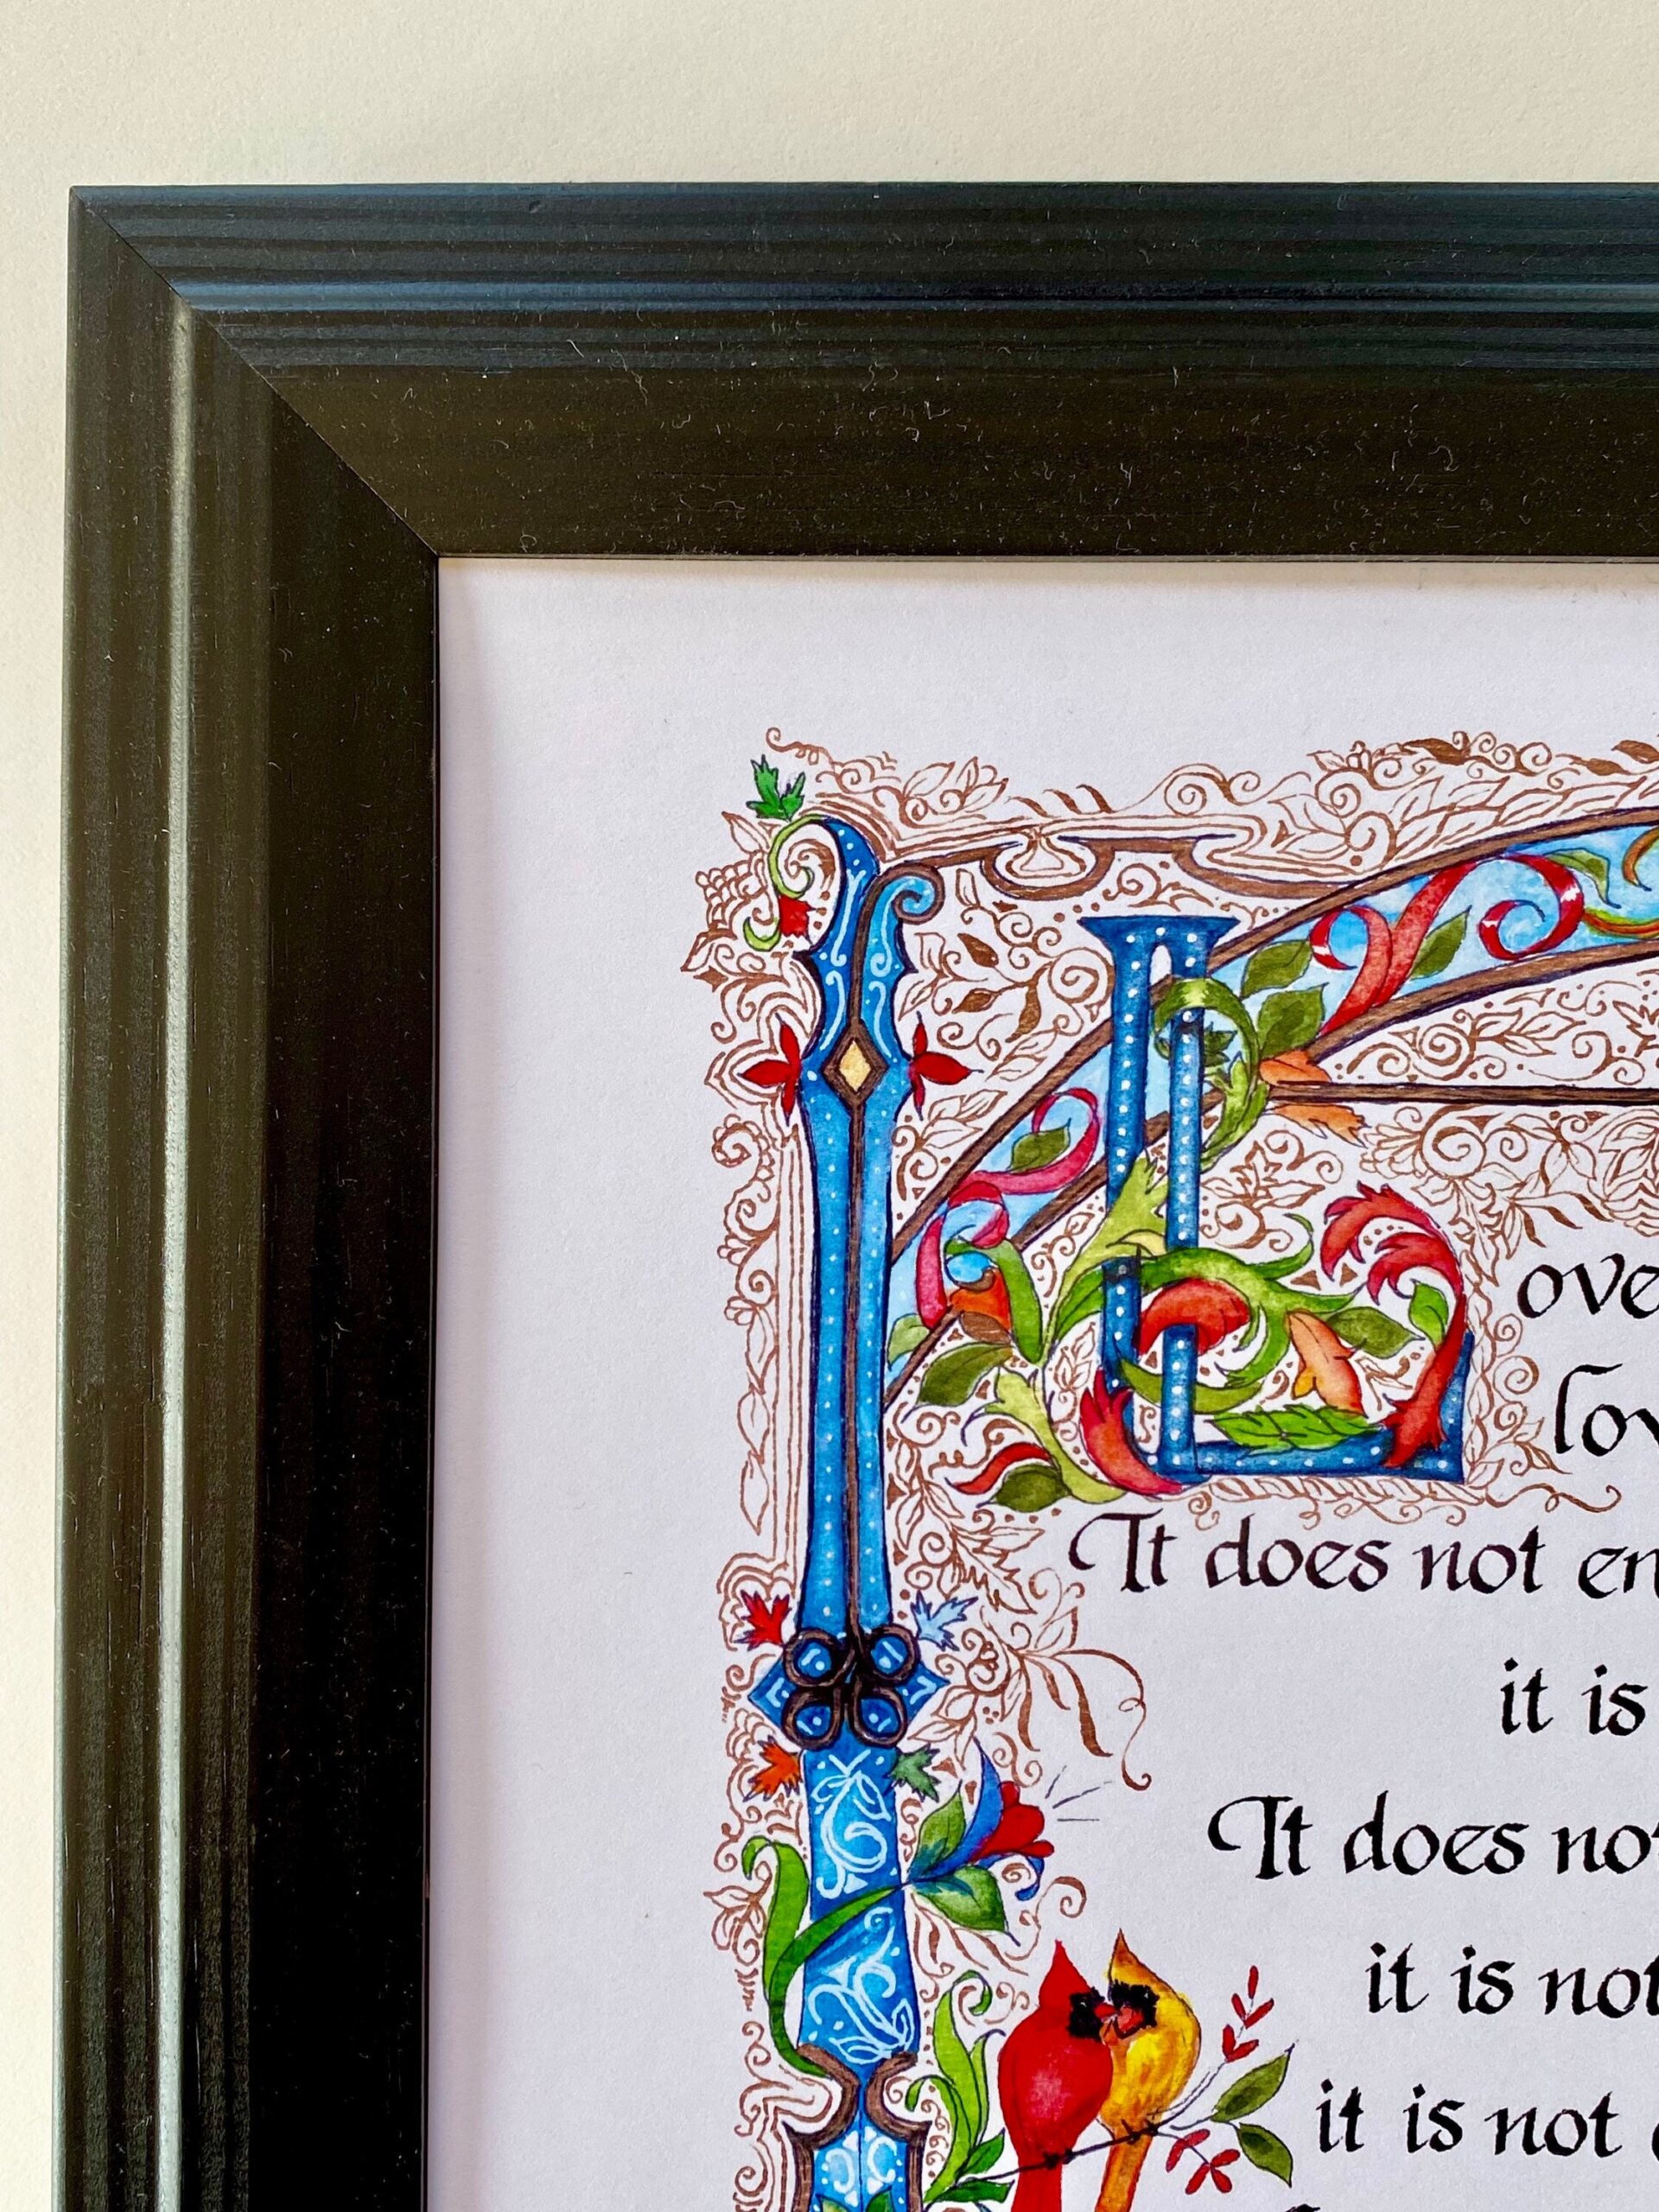 Love
lov
It does not en
it is
It does not
it is not
it is not